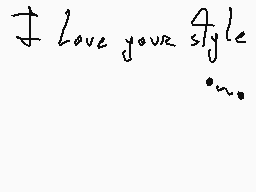 I love your style